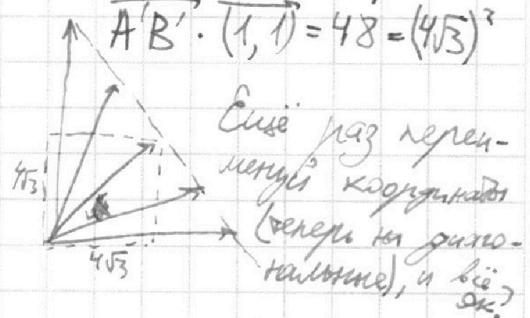 A'B' · (1,1) = 48 = (4√3)²
Ещё
раз переи-
менуй координаты
4√3
(теперь на диаго-
нальные), и всё
4√3
ок?